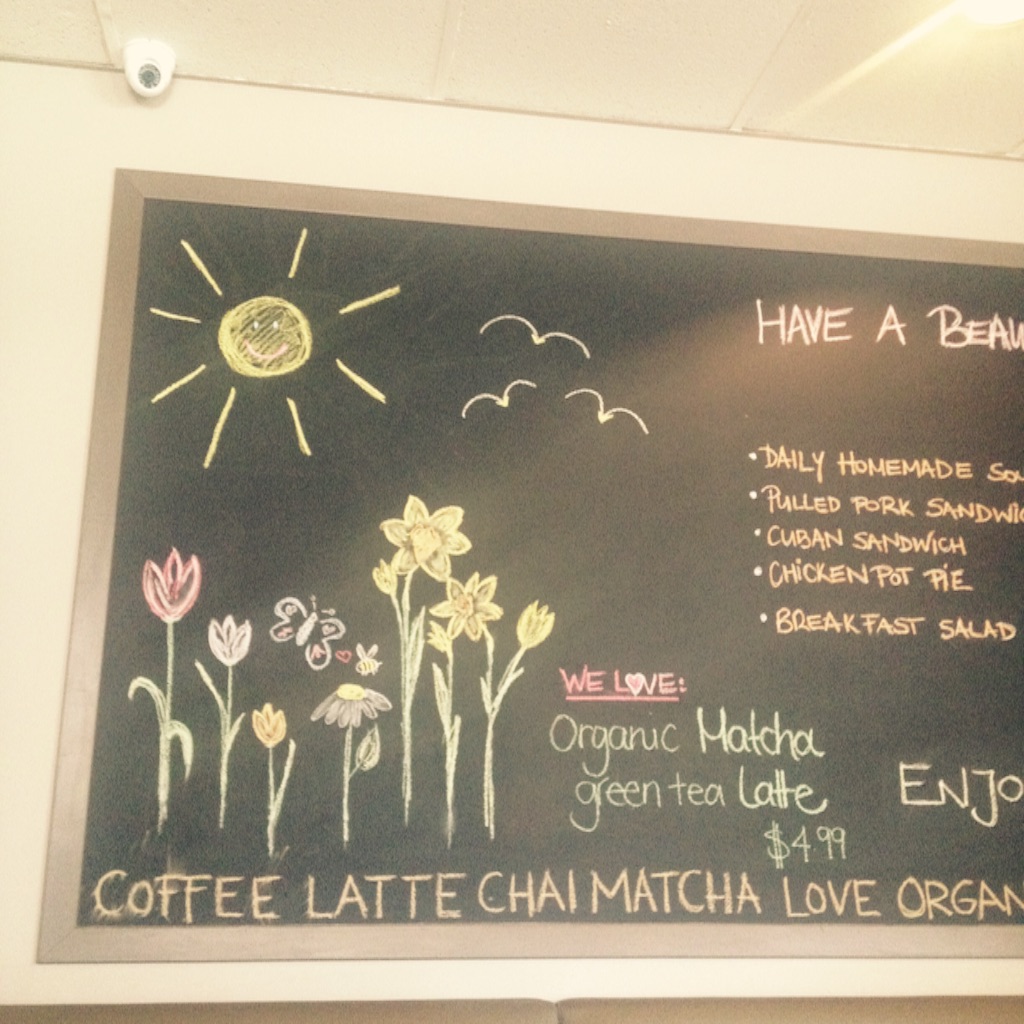 HAVE A BEAU
• DAILY HOMEMADE SOU
• PULLED PORK SANDWIC
• CUBAN SANDWICH
• CHICKEN POT PIE
• BREAKFAST SALAD
WE LOVE:
Organic Matcha
green tea Latte
$4.99
ENJO
COFFEE LATTE CHAI MATCHA LOVE ORGAN